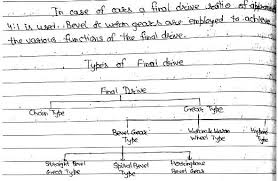 In case of cars a final drive ratio of
4:1 is used. Bevel & worm gears are employed to achieve
the various functions of the final drive.
Types of Final drive
Final Drive
Chain Type
Gear Type
Bevel Gear
Type
Worm & Worm
Wheel Type
Hypoid
Type
Straight Bevel
Gear Type
Spiral Bevel
Type
Herringbone
Bevel Gear